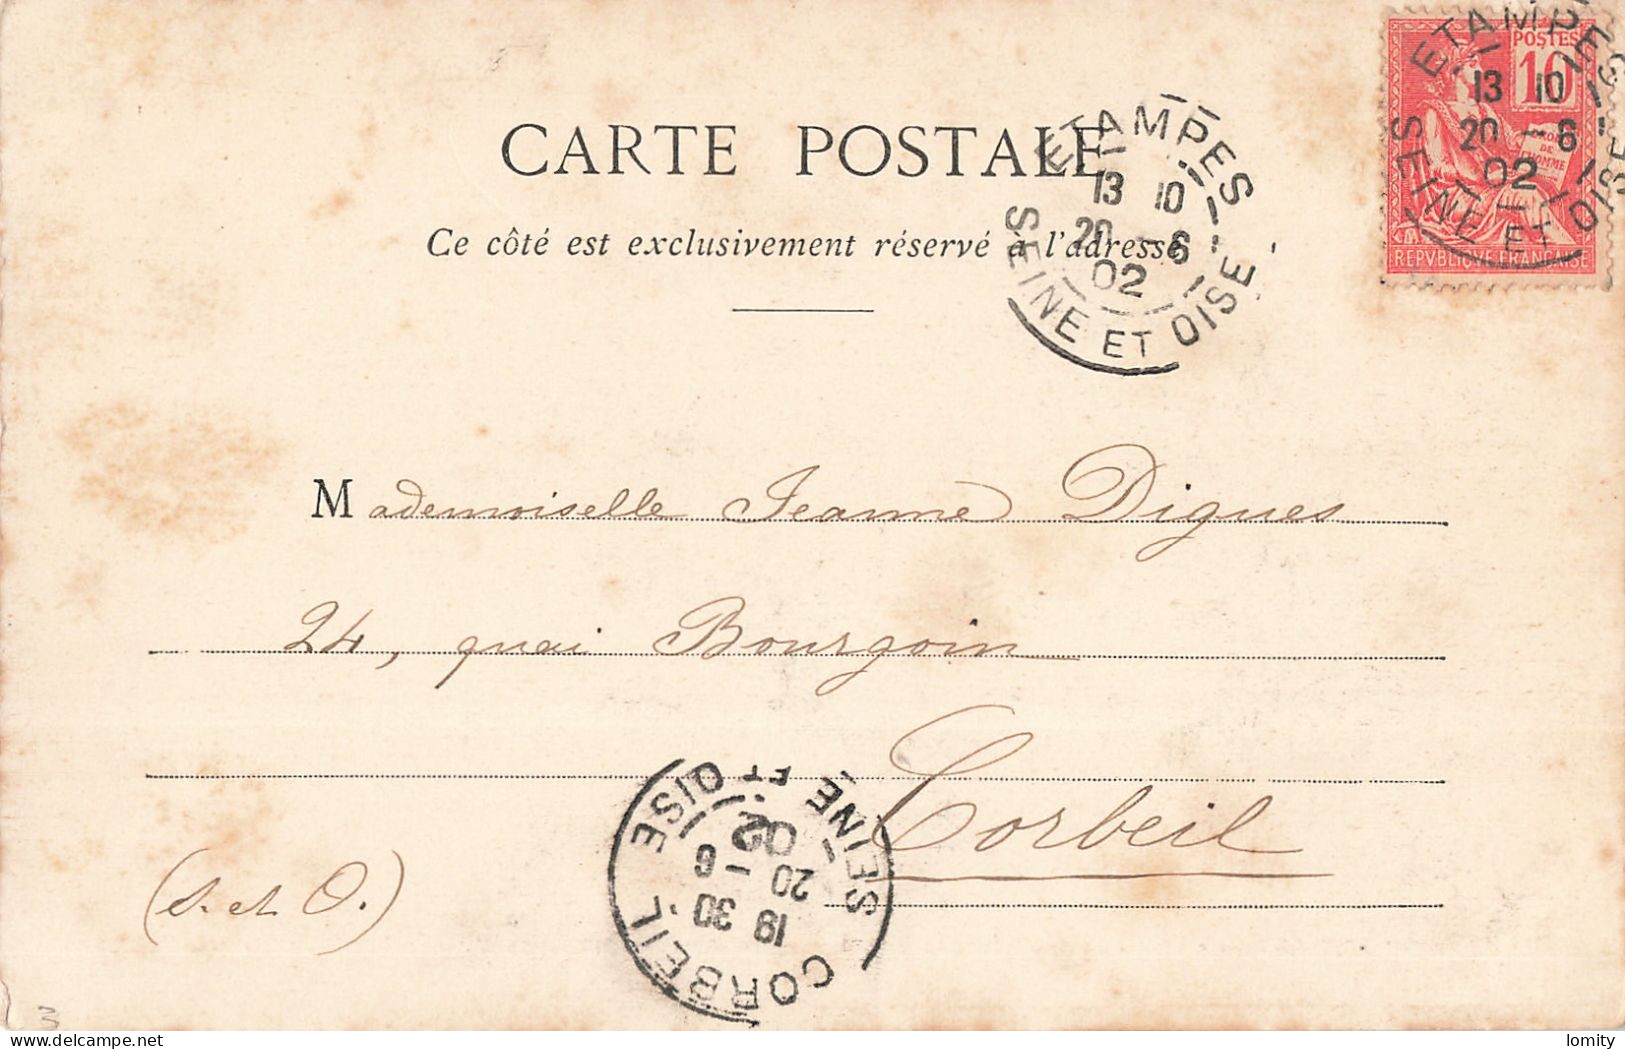 CARTE POSTALE
Ce côté est exclusivement réservé à l'adresse
ETAMPES
13 10
20 - 6
02
SEINE ET OISE
POSTES
10
ETAMPES
13 10
20 - 6
02
SEINE ET OISE
REPVBLIQUE FRANÇAISE
Mademoiselle Jeanne Digues
24, quai Bourgoin
Corbeil
(S. et O.)
CORBEIL
19 30
20 - 6
02
SEINE ET OISE
3
lomity